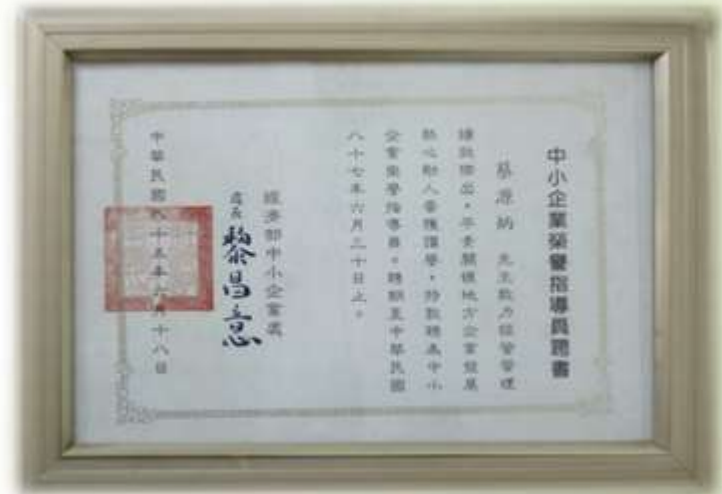 中小企業榮譽指導員聘書
蔡原 先生致力經營管理
績效傑出,平素關懷地方企業發展
熱心助人普獲讚譽,特敦聘為中小
企業榮譽指導員。聘期至中華民國
八十七年六月三十日止。
經濟部中小企業處
處長 黎昌意
中華民國八十五年六月十八日